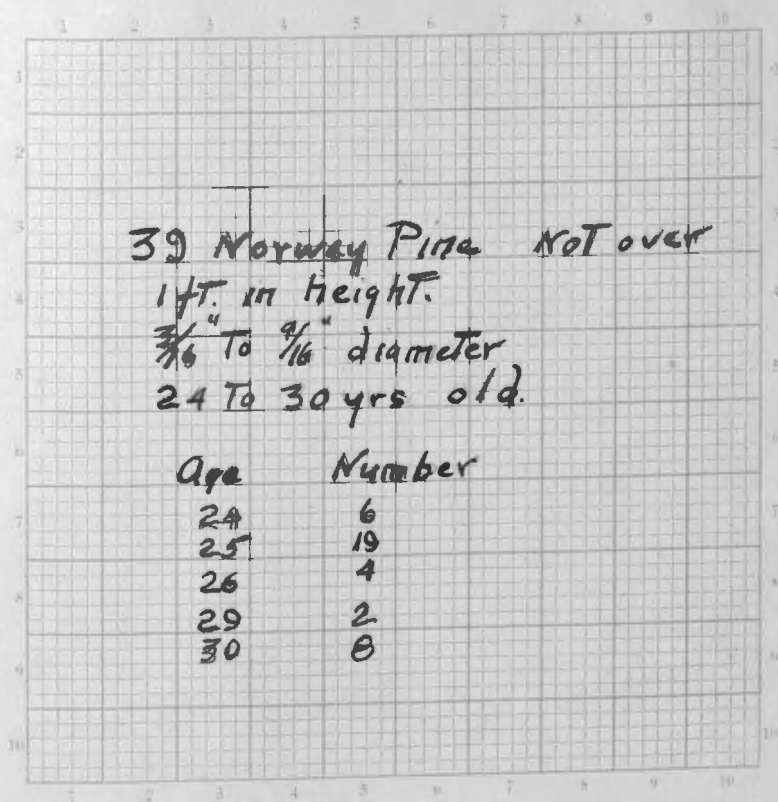 1 2 3 4 5 6 7 8 9 10
39 Norway Pine Not over
1 ft. in Height.
3/16" To 9/16" diameter
24 To 30 yrs old.
Age Number
24 6
25 19
26 4
29 2
30 8
1 2 3 4 5 6 7 8 9 10